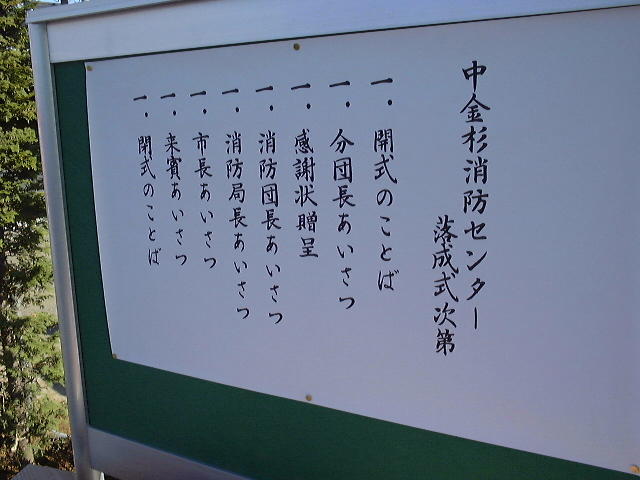 中金杉消防センター
落成式次第
一．開式のことば
一．分団長あいさつ
一．感謝状贈呈
一．消防団長あいさつ
一．消防局長あいさつ
一．市長あいさつ
一．来賓あいさつ
一．閉式のことば